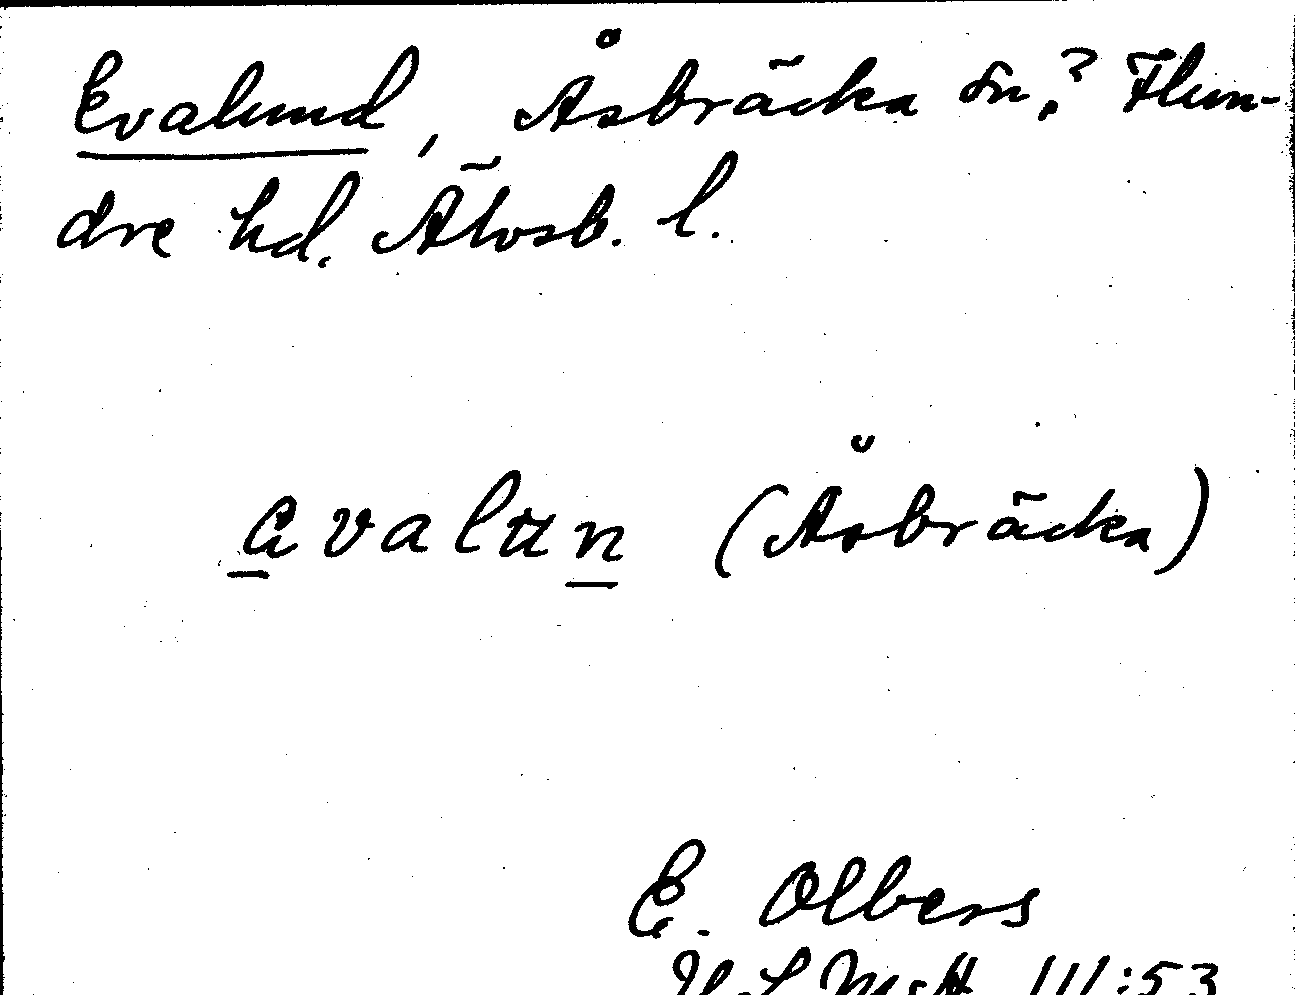 Evalund, Åsbräcka sn? Flun-
dre hd. Älvsb. l.
(Åsbräcka)
E. Olbers
III:53